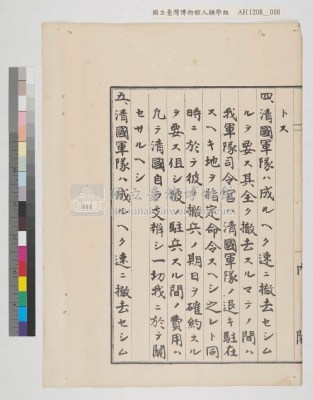 國立臺灣博物館人類學組 AH1208_006
トス
四、清國軍隊ハ成ルヘク速ニ撤去セシム
ルヲ要ス其全ク撤去スルマテノ間ハ
我軍隊司令官ハ清國軍隊ノ退キ駐在
スヘキ地ヲ指定命令スヘシ之レト同
時ニ於テ彼ノ撤兵ノ期日ヲ確約スル
ヲ要ス但シ彼ノ駐兵スル間ノ費用ハ
凢テ清國自ラ支辨シ一切我ニ於テ關
セサルヘシ
五、清國軍隊ハ成ルヘク速ニ撤去セシム
內閣